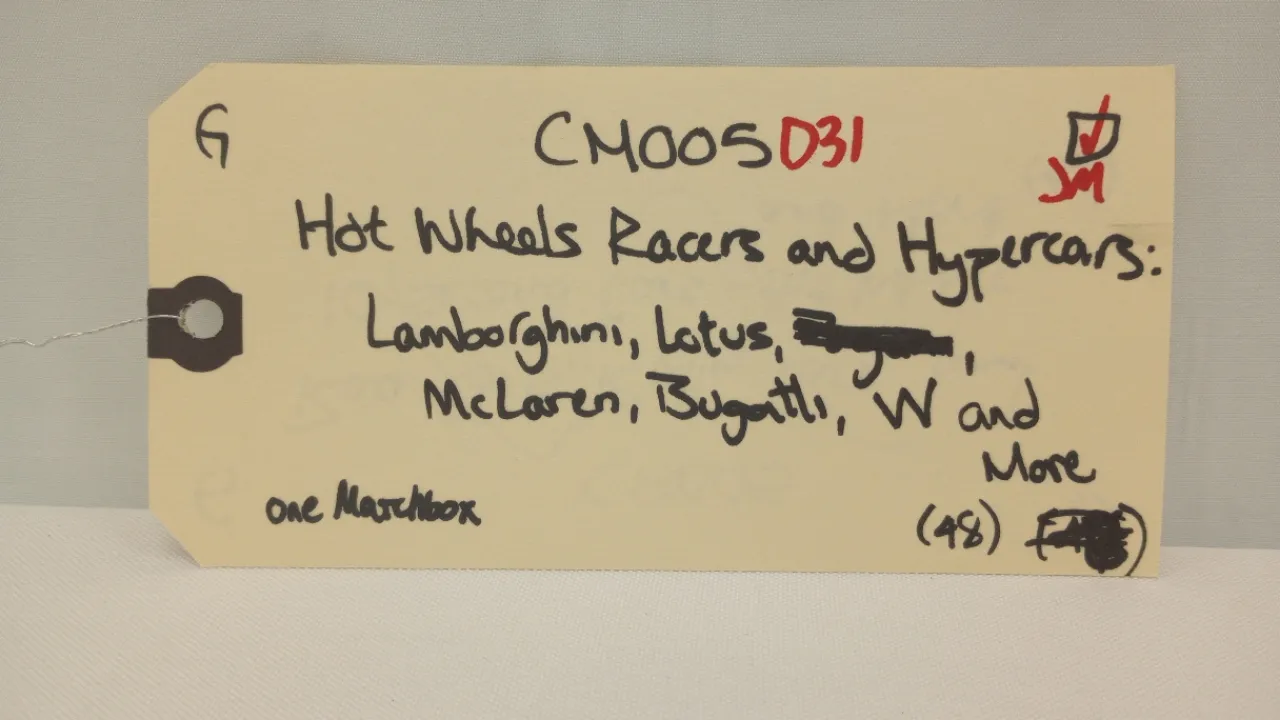 G
CM005D31
JM
Hot Wheels Racers and Hypercars:
Lamborghini, Lotus, ,
McLaren, Bugatti, W and
More
one Matchbox
(48)